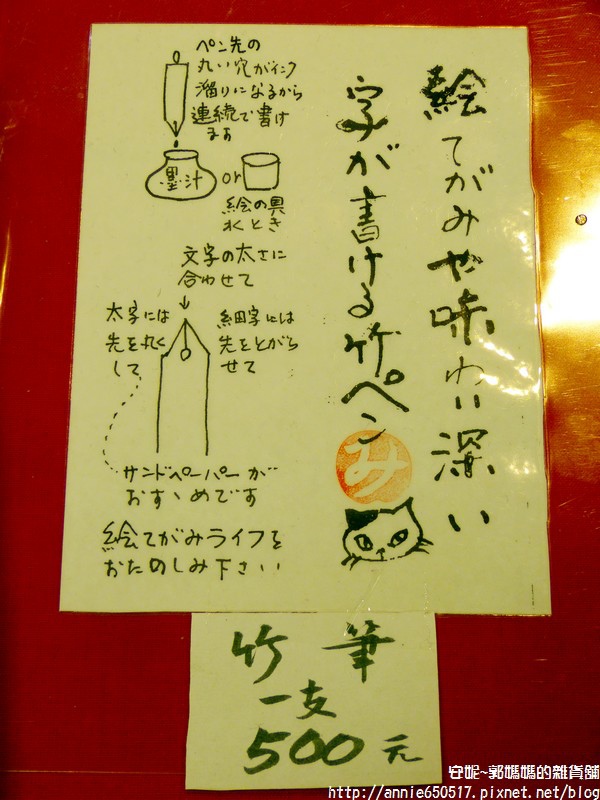 絵てがみや味わい深い
字が書ける竹ペン
み
ペン先の
丸い穴がインク
溜りになるから
連続で書け
ます
墨汁
or
絵の具
水とき
文字の太さに
合わせて
太字には
先を丸く
して
細田字には
先をとがら
せて
サンドペーパーが
おすゝめです
絵てがみライフを
おたのしみ下さい
竹筆
一支
500元
安妮~郭媽媽的雜貨舖
http://annie650517.pixnet.net/blog